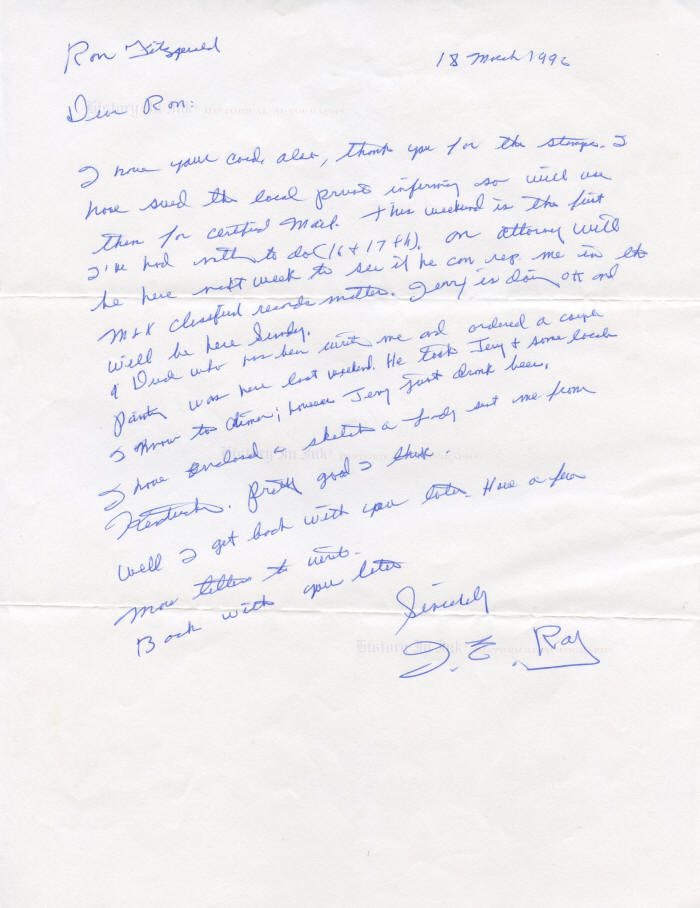 Ron Fitzgerald
18 March 1996
Dear Ron:
I have your card, also, thank you for the stamps. I
have sued the local prison infirmiry so will use
them for certified Mail. This weekend is the first
I've had nothing to do (16 + 17 th). An attorney will
be here next week to see if he can rep. me in the
MLK classified records matter. Jerry is doing ok and
will be here Sunday.
A Dude who has been writing me and ordered a couple
was here last weekend. He took Jerry + some locals
I know to dinner; however Jerry just drank beer.
I have enclosed a sketch a lady sent me from
Kentucky. Pretty good I think.
Well I get back with you later. Have a few
more letters to write.
Back with you later
Sincerely
J. E. Ray
History In Ink HISTORICAL AUTOGRAPHS
History In Ink HISTORICAL AUTOGRAPHS
History In Ink HISTORICAL AUTOGRAPHS